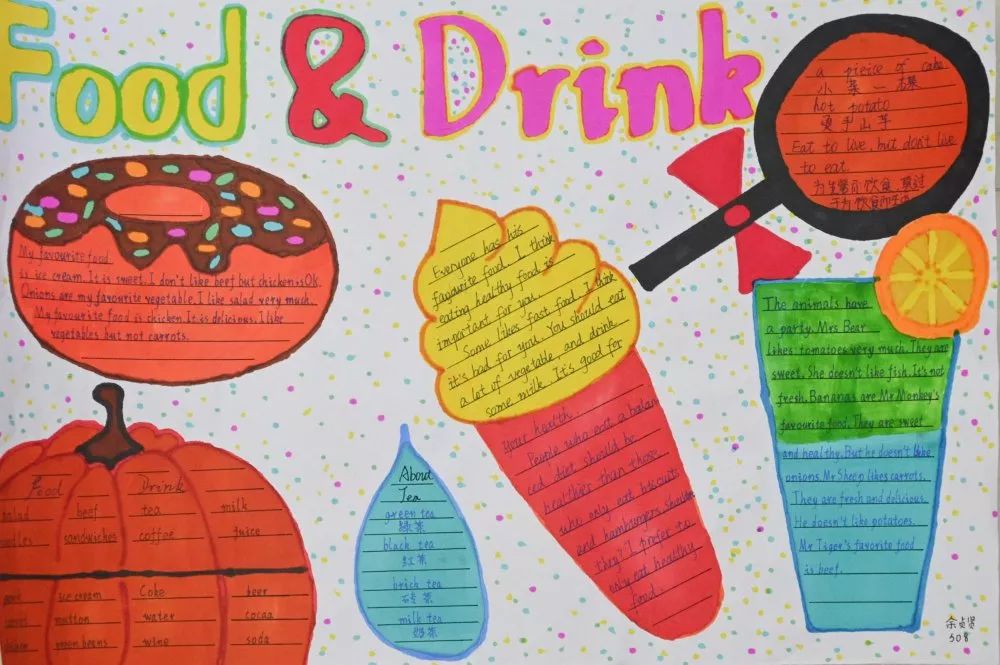 Food & Drink
My favourite food
is ice cream. It is sweet. I don't like beef but chicken is OK.
Onions are my favourite vegetable. I like salad very much.
My favourite food is chicken. It is delicious. I like
vegetables but not carrots.
Everyone has his
favourite food. I think
eating healthy food is
important for you.
Some likes fast food. I think
it's bad for you. You should eat
a lot of vegetable, and drink
some milk. It's good for
your health.
People who eat a balan
ced diet should be
healthier than those
who only eat
and hambumgers.
they? I prefer to
only eat healthy
food.
a pieice of cake
小菜一碟
hot potato
烫手山芋
Eat to live, but don't live
to eat.
为生活而饮食,莫过
于为饮食而生活
The animals have
a party. Mrs Bear
likes tomatoes very much. They are
sweet. She doesn't like fish. It's not
fresh. Bananas are Mr Monkey's
favourite food. They are sweet
and healthy. But he doesn't like
onions. Mr Sheep likes carrots.
They are fresh and delicious.
He doesn't like potatoes.
Mr Tiger's favorite food
is beef.
Food Drink
salad beef tea milk
sandwiches coffee juice
ice cream Coke beer
mutton water cocoa
moon beans wine soda
About
Tea
green tea
绿茶
black tea
红茶
brick tea
砖茶
milk tea
奶茶
308